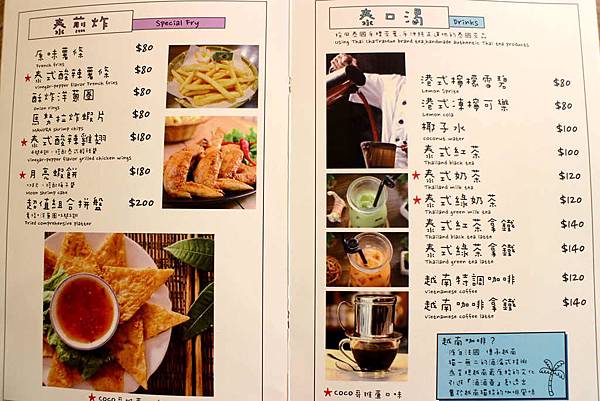 泰煎炸
Special Fry
原味薯條 $80
French fries
★泰式酸辣薯條 $80
vinegar-pepper flavor French fries
酥炸洋蔥圈 $80
onion rings
馬努拉炸蝦片 $80
MANURA shrimp chips
★泰式酸辣雞翅 $180
vinegar-pepper flavor grilled chicken wings
★月亮蝦餅 $180
Moon shrimp cake
超值組合拼盤 $200
Fried comprehensive platter
泰口渴
Drinks
Using Thai ChaTraMue brand tea,handmade authentic Thai tea products
港式檸檬雪碧 $80
Lemon Sprite
港式凍檸可樂 $80
Lemon cola
椰子水 $100
coconut water
泰式紅茶 $100
Thailand black tea
★泰式奶茶 $120
Thailand milk tea
★泰式綠奶茶 $120
Thailand green milk tea
泰式紅茶拿鐵 $140
Thailand black tea latte
泰式綠茶拿鐵 $140
Thailand green tea latte
越南特調咖啡 $120
Vietnamese coffee
越南咖啡拿鐵 $140
Vietnamese coffee latte
越南咖啡?
源自法國 傳承越南
獨一無二的滴漏式技術
★COCO哥推薦口味